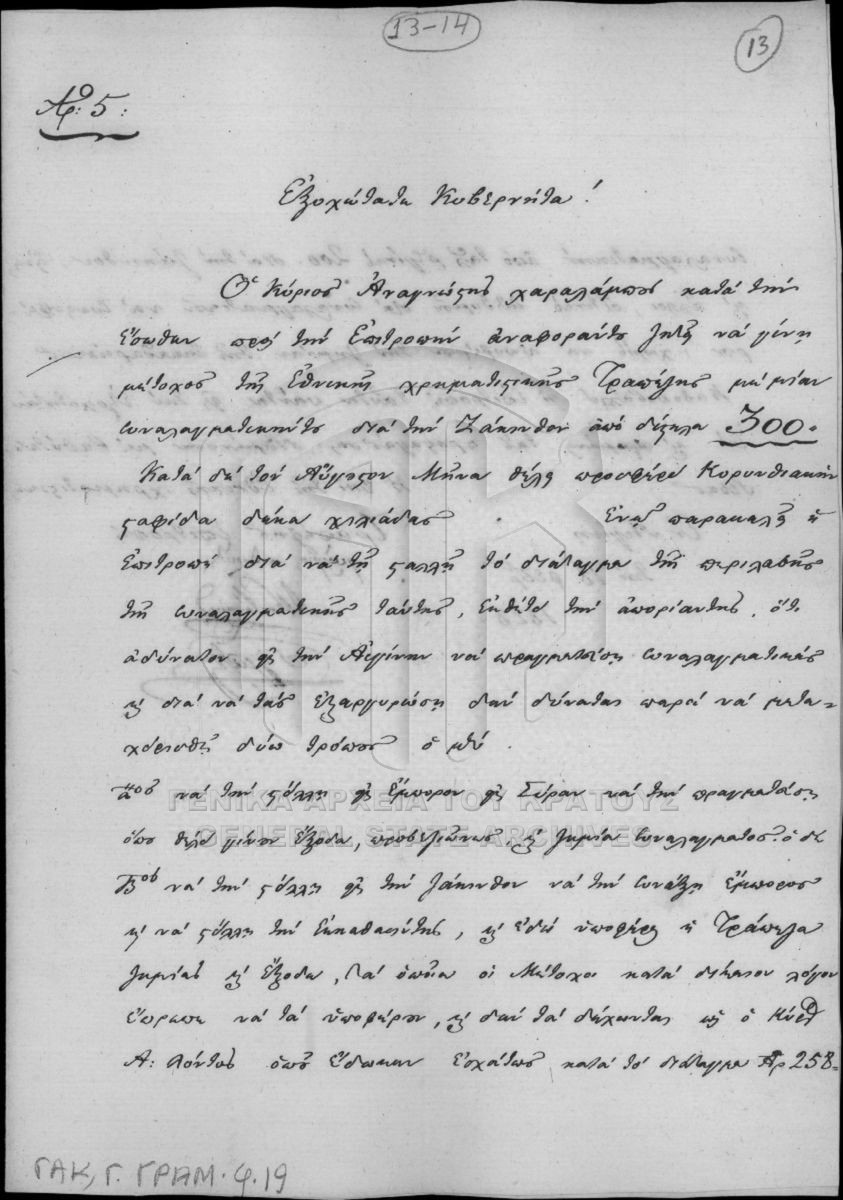 13-14
13
Αρ: 5:
Ἐξοχώτατε Κυβερνῆτα!
Ὁ Κύριος Ἀναγνώςης χαραλάμπος κατὰ τὴν
ἔσωθεν πρὸς τὴν Ἐπιτροπὴν ἀναφοράντε ζητᾶ νὰ γίνη
μέτοχος τῆς Ἐθνικῆς χρηματιςικῆς Τραπέζης μὲ μίαν
συναλαγματικήντε διὰ τὴν Ζάκινθον ἀπὸ δίςηλα 300.
Κατὰ δὲ τὸν Αὔγουςον Μῆνα θέλει προσφέρει Κορινθιακὴν
ςαφίδα δέκα χιλιάδας. Ἐνῶ παρακαλεῖ ἡ
Ἐπιτροπὴ διὰ νὰ τῆς ςαλλῆ τὸ διάταγμα τῆς περιλαβῆς
τῆς συναλαγματικῆς ταύτης, ἐκθέτει τὴν ἀπορίαντης, ὅτι
ἀδύνατον εἰς τὴν Αἰγίνην νὰ πραγματεύση συναλαγματικὰς
καὶ διὰ νὰ τὰς ἐξαργυρώση δὲν δύναται παρὰ νὰ μετα=
χειρισθῆ δύω τρόπους ὁ μὲν.
αος νὰ τὴν ςείλλη εἰς ἔμπορον εἰς Σύραν νὰ τὴν πραγματεύση
ὅπου θέλει γίνουν ἔξοδα, προβεζιώνες, καὶ ζημία συναλαγματος. ὁ δὲ
Βος νὰ τὴν ςείλλη εἰς τὴν Ζάκινθον νὰ τὴν συνάξη ἔμπορος
καὶ νὰ ςείλλη τὴν, καὶ ἐδῶ ὑποφέρει ἡ Τράπεζα
ζημίας καὶ ἔξοδα, τὰ ὁποῖα οἱ Μέτοχοι κατὰ δίκαιον λόγον
ἔπρεπε νὰ τὰ ὑποφέρουν, καὶ δὲν τὰ δέχωνται ὡς ὁ Κύρ
Α: Λόντος ὅπου ἔδωκεν ἐσχάτως κατὰ τὸ διάταγμα Αρ 258=
ΓΕΝΙΚΑ ΑΡΧΕΙΑ ΤΟΥ ΚΡΑΤΟΥΣ
GENERAL STATE ARCHIVES
ΓΑΚ, Γ. ΓΡΑΜ. φ. 19